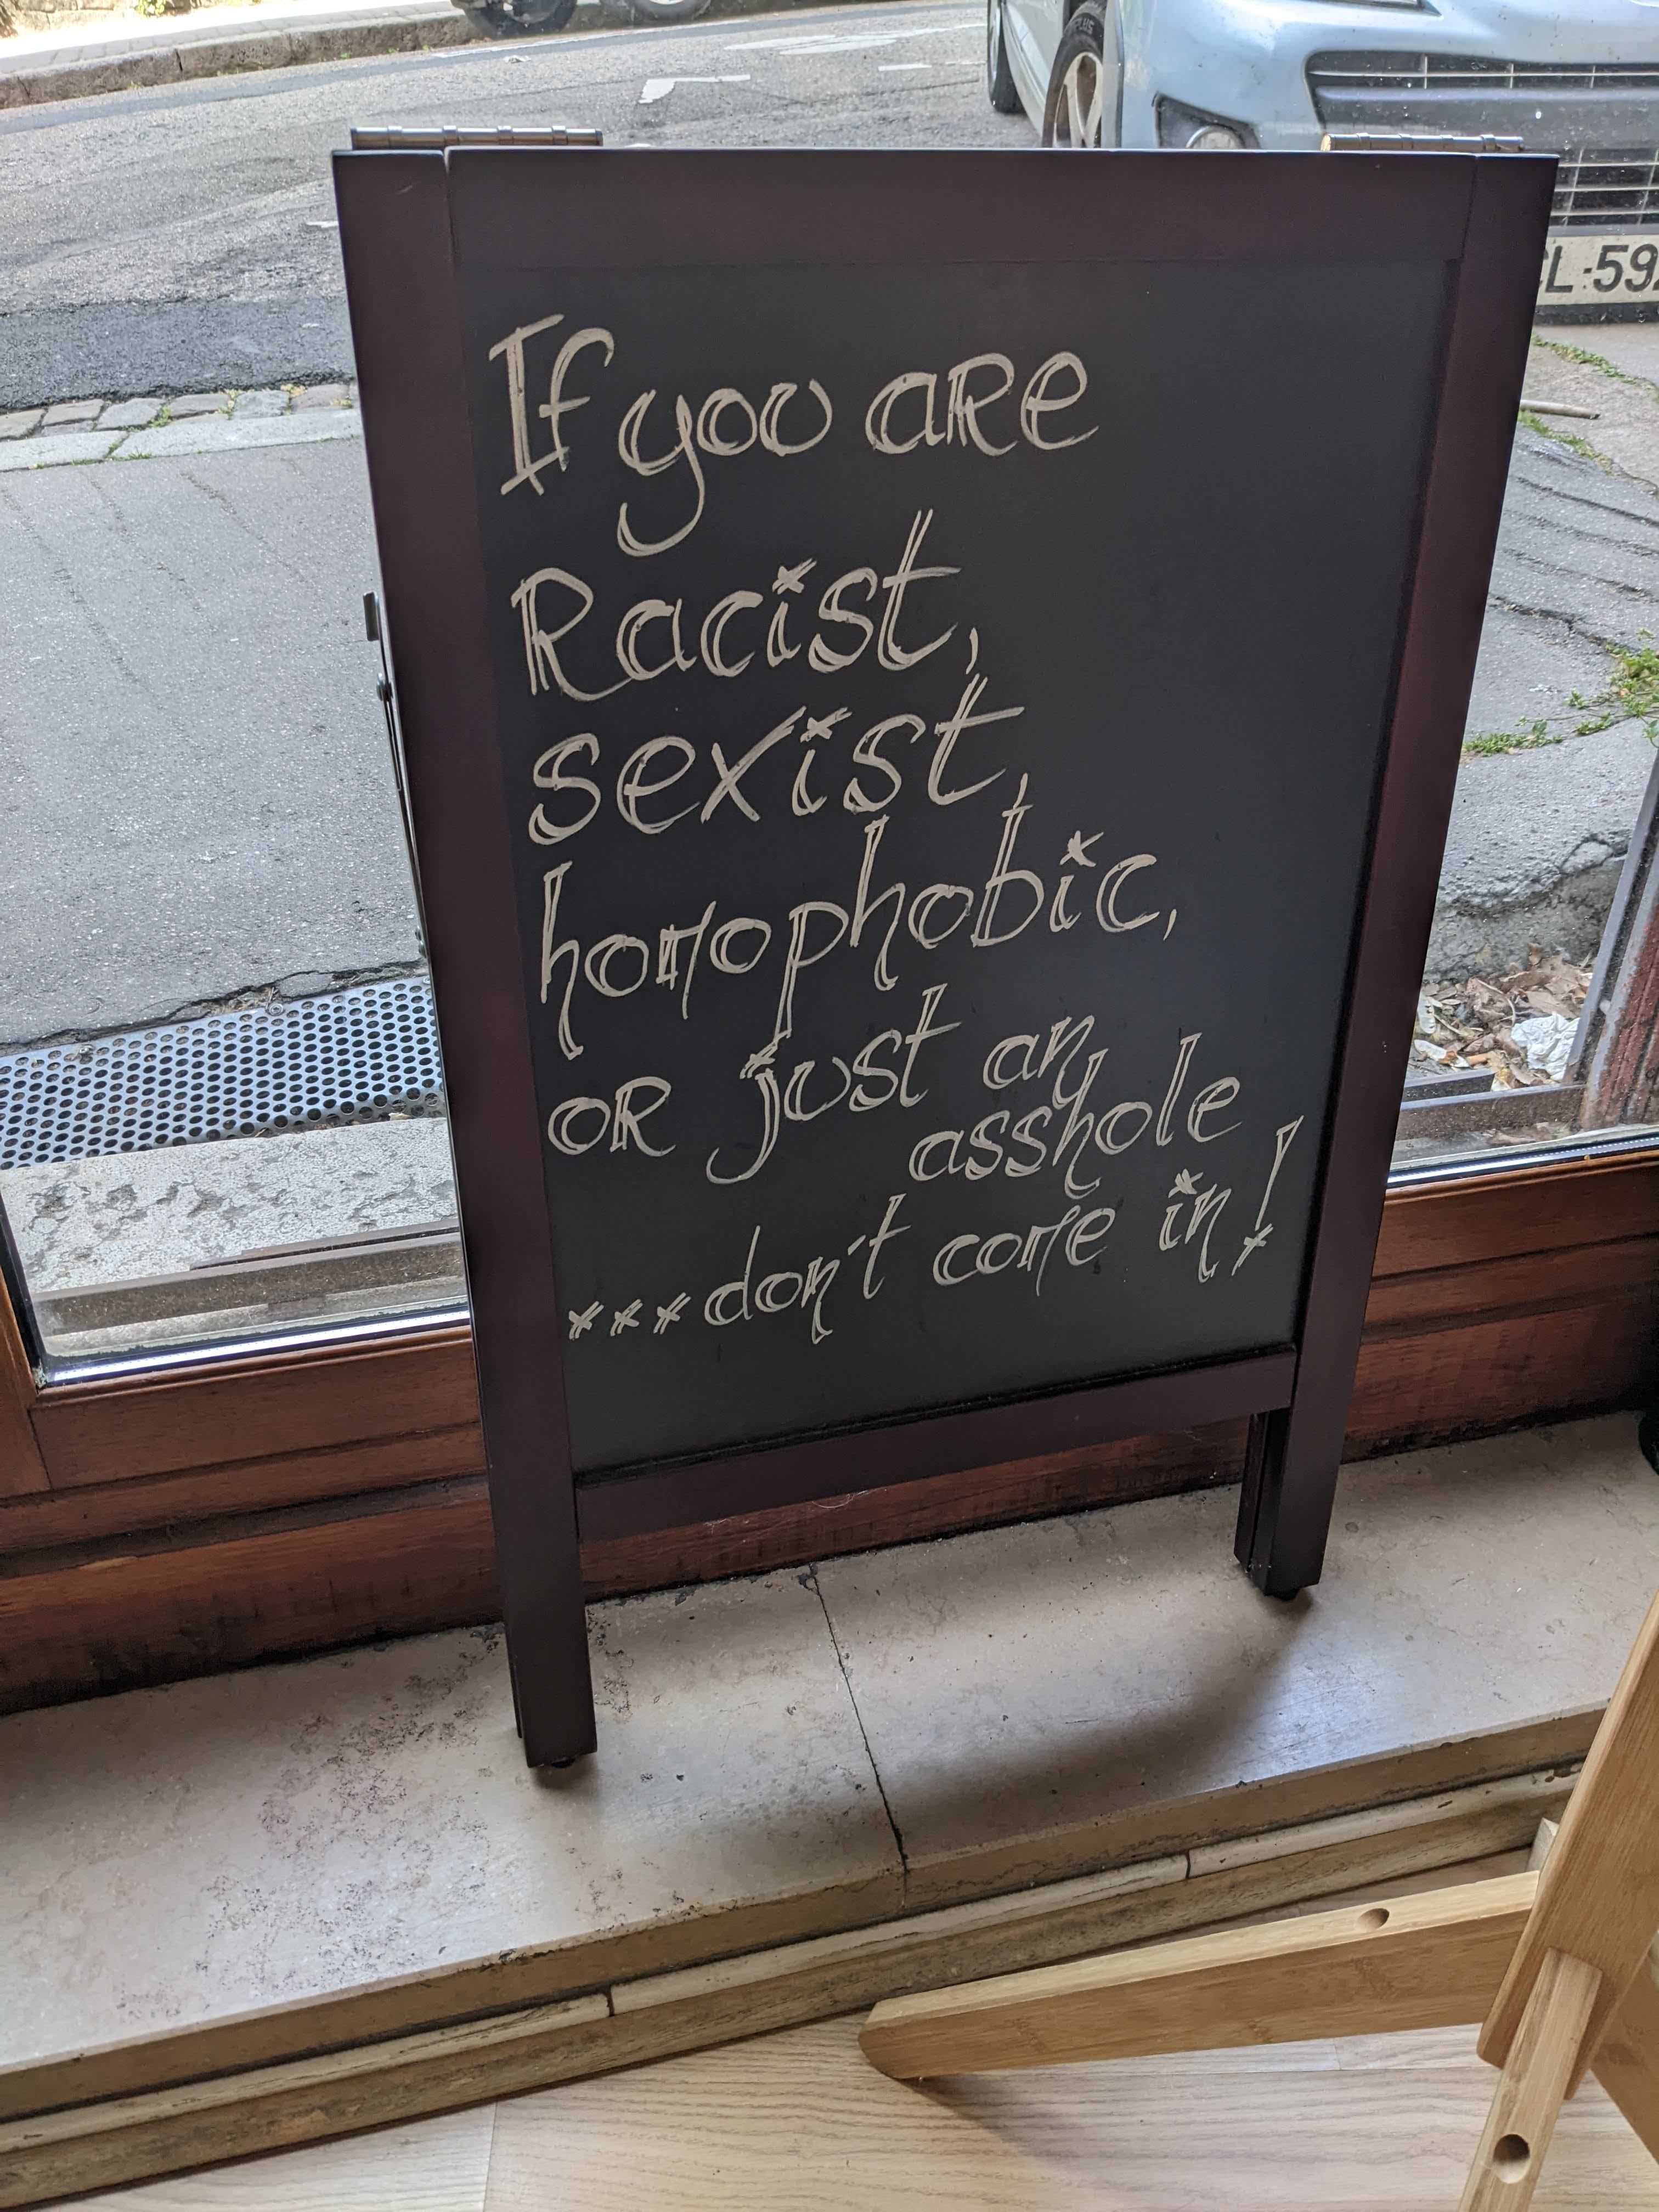 If you are
Racist,
sexist,
homophobic,
or just an
asshole
...don't come in!